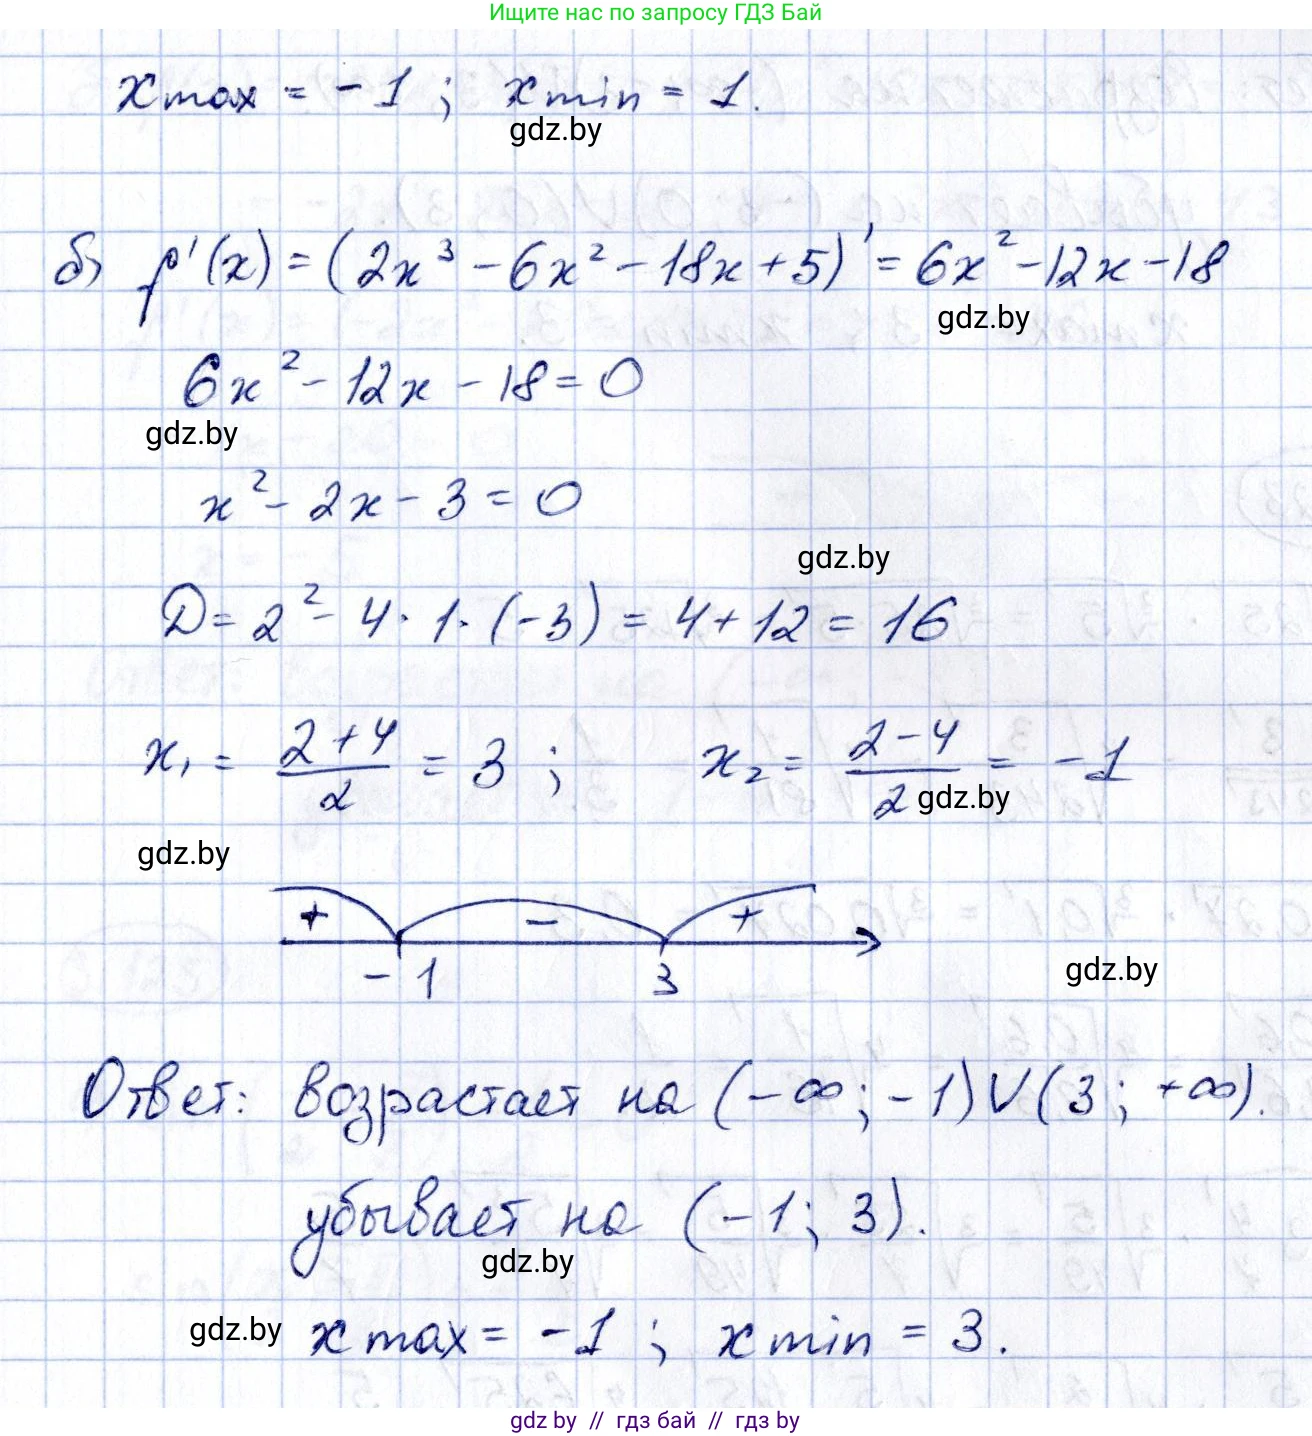 Ищите нас по запросу ГДЗ Бай
x max = -1 ; x min = 1.
gdz.by
б) f'(x) = (2x³ - 6x² - 18x + 5)' = 6x² - 12x - 18
gdz.by
6x² - 12x - 18 = 0
gdz.by
x² - 2x - 3 = 0
gdz.by
D = 2² - 4 · 1 · (-3) = 4 + 12 = 16
x₁ = (2+4)/2 = 3 ; x₂ = (2-4)/2 = -1
gdz.by
gdz.by
+ - +
-1 3
gdz.by
Ответ: возрастает на (-∞; -1) ∪ (3; +∞).
убывает на (-1; 3).
gdz.by
gdz.by x max = -1 ; x min = 3.
gdz by // гдз бай // гдз by